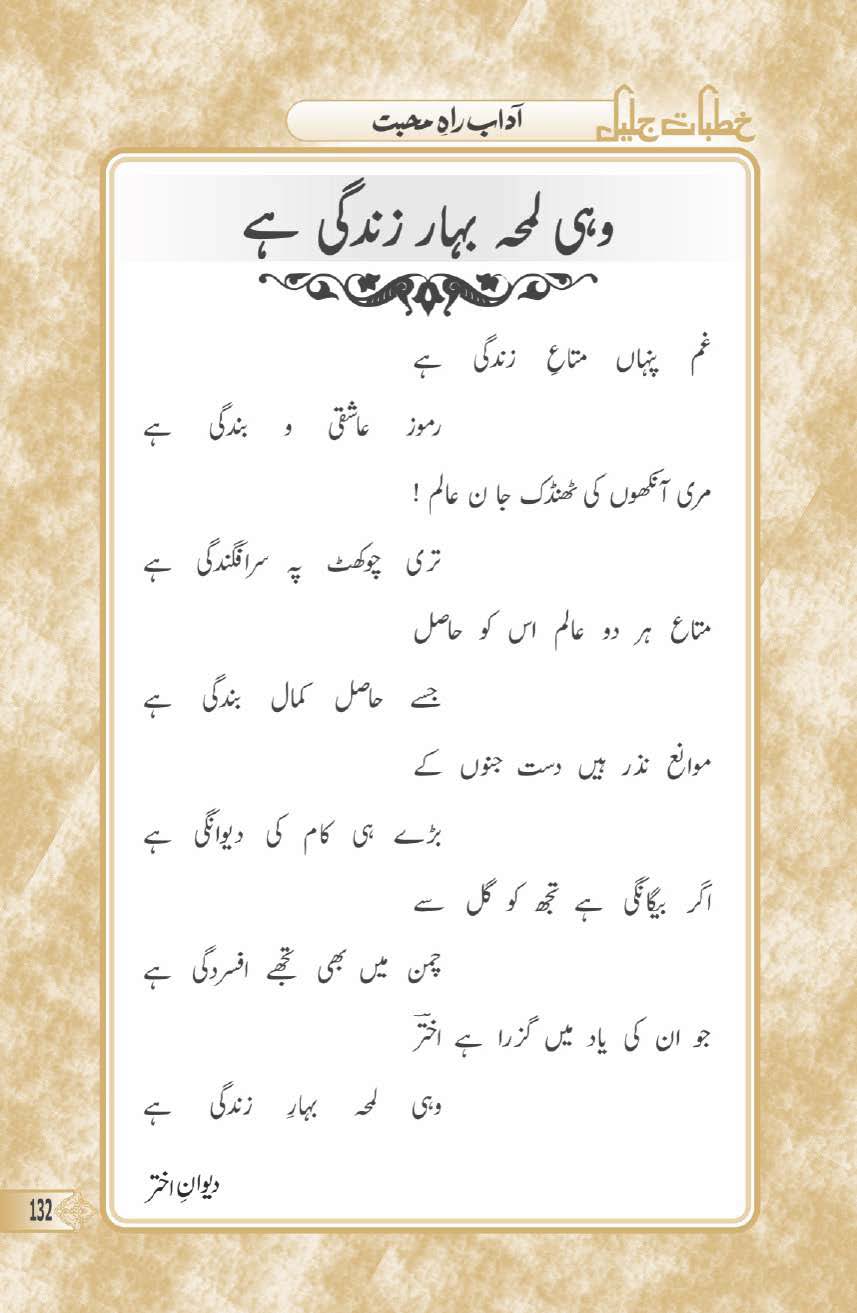 خطبات جلیل
آداب راہِ محبت
وہی لمحہ بہار زندگی ہے
غم پنہاں متاعِ زندگی ہے
رموز عاشقی و بندگی ہے
مری آنکھوں کی ٹھنڈک جا ن عالم !
تری چوکھٹ پہ سرافگندگی ہے
متاع ہر دو عالم اس کو حاصل
جسے حاصل کمال بندگی ہے
موانع نذر ہیں دست جنوں کے
بڑے ہی کام کی دیوانگی ہے
اگر بیگانگی ہے تجھ کو گل سے
چمن میں بھی تجھے افسردگی ہے
جو ان کی یاد میں گزرا ہے اخترؔ
وہی لمحہ بہارِ زندگی ہے
دیوانِ اختر
132